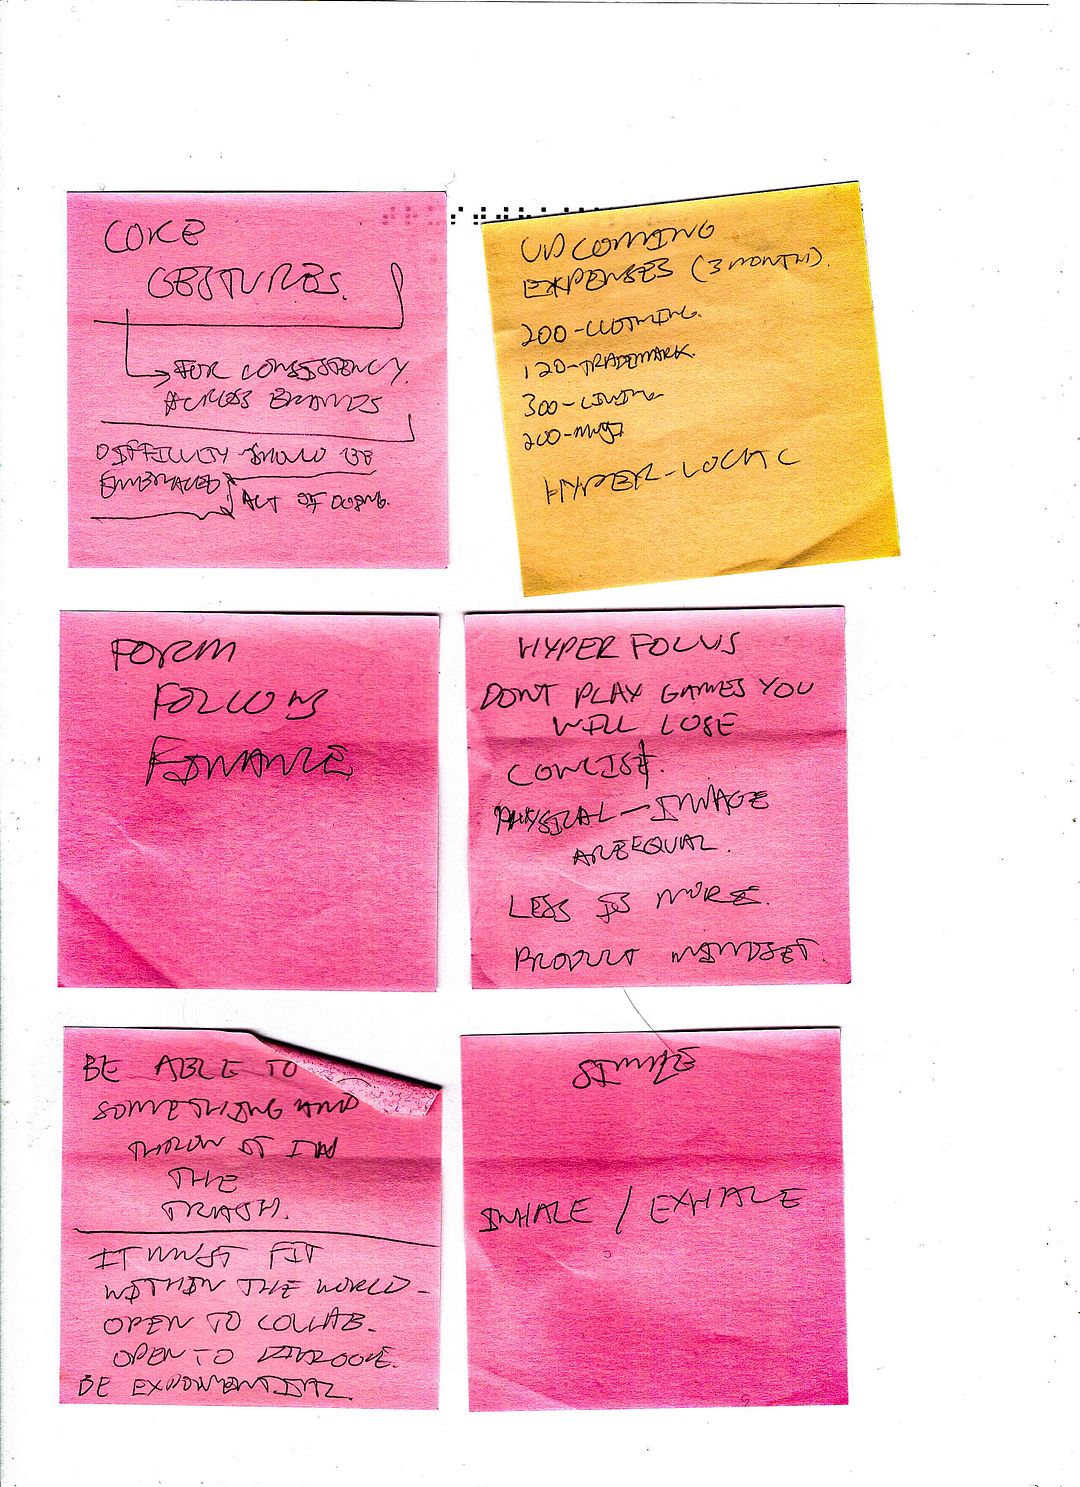 CORE
GESTURES.
FOR CONSISTENCY
ACROSS BRANDS
DIFFICULTY SHOULD BE
EMBRACED ACT OF DOING.
UPCOMING
EXPENSES (3 MONTH).
200-CLOTHING.
120-TRADEMARK.
300-LIVING
200-
HYPER-LOCAL
FORM
FOLLOWS
FINANCE
HYPER FOCUS
DONT PLAY GAMES YOU
WILL LOSE
CONCISE.
PHYSICAL-IMAGE
ARE EQUAL.
LESS IS MORE.
PRODUCT MINDSET.
BE ABLE TO
SOMETHING AND
THROW IT IN
THE
TRASH.
IT MUST FIT
WITHIN THE WORLD-
OPEN TO COLLAB.
OPEN TO
BE EXPONENTIAL.
SIMPLE
INHALE / EXHALE